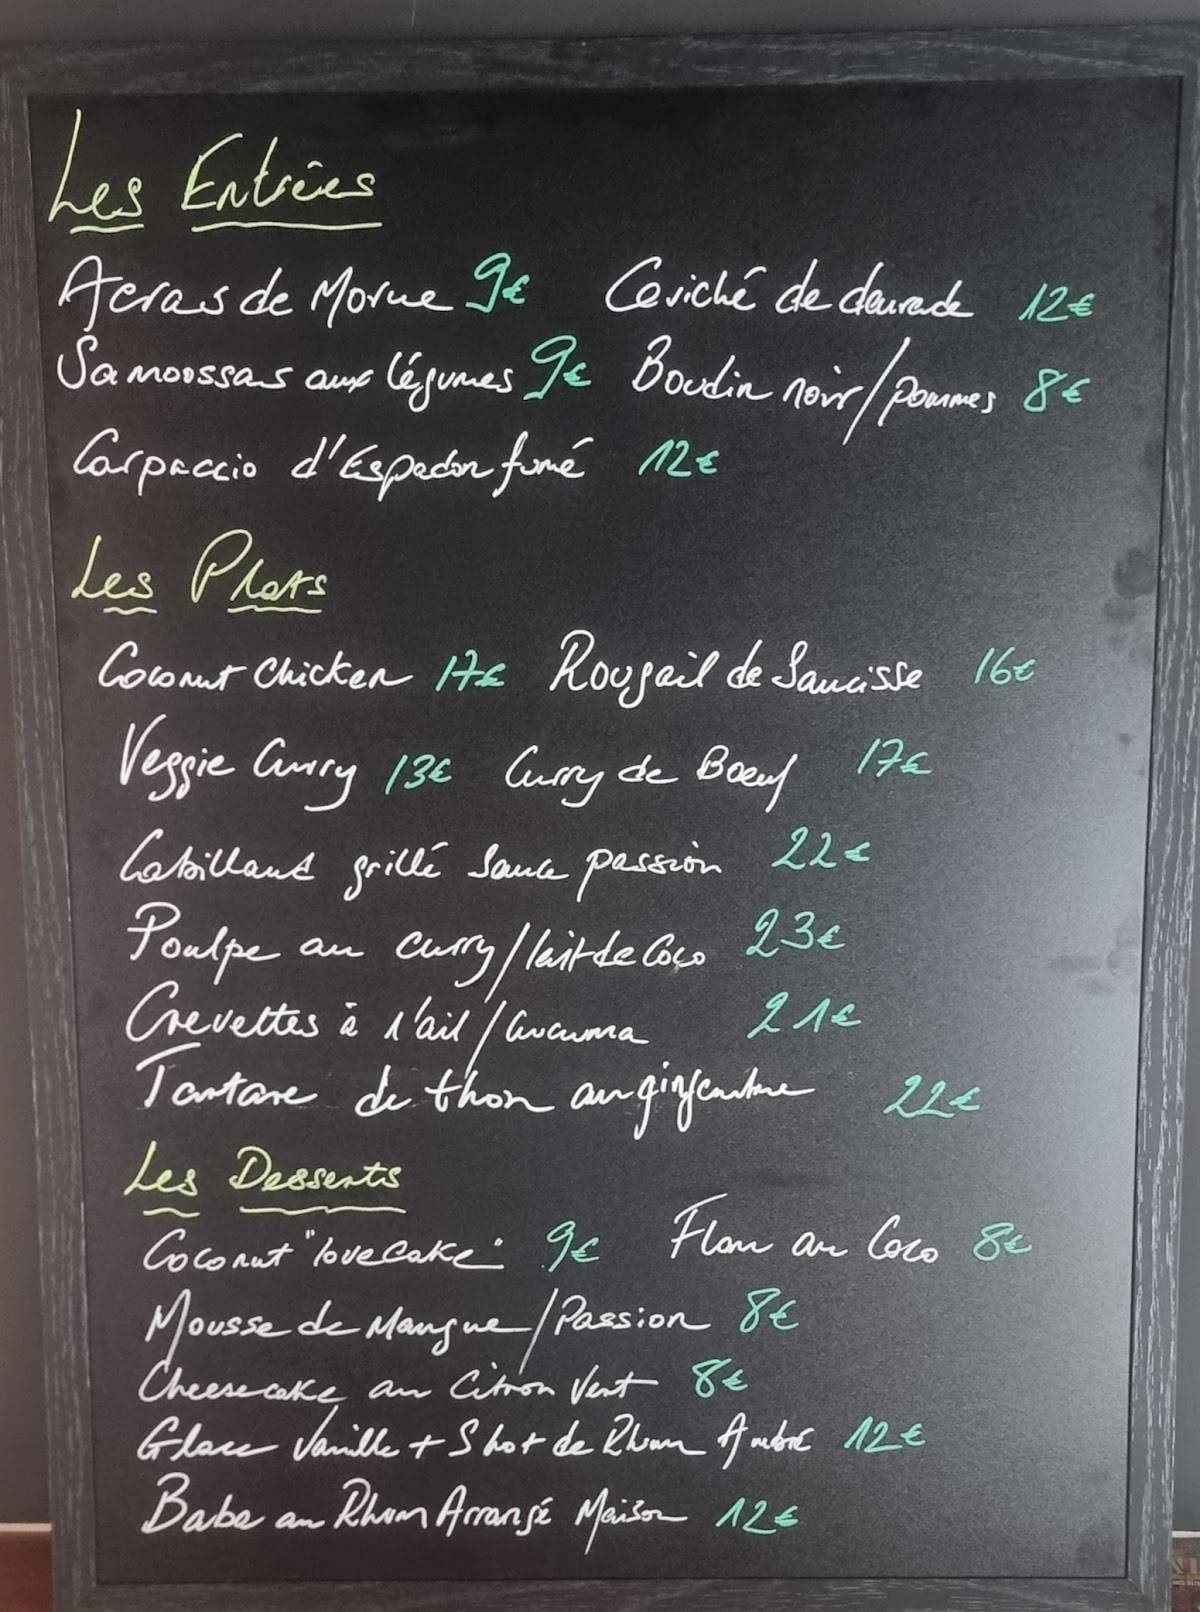 Les Entrées
Acras de Morue 9€ Ceviché de daurade 12€
Samoossas aux légumes 9€ Boudin noir/pommes 8€
Carpaccio d'Espadon fumé 12€
Les Plats
Coconut Chicken 17€ Rougail de Saucisse 16€
Veggie Curry 13€ Curry de Boeuf 17€
Cabillaud grillé sauce passion 22€
Poulpe au curry/lait de Coco 23€
Crevettes à l'ail/curcuma 21€
Tartare de thon au gingembre 22€
Les Desserts
Coconut "loveCake" 9€ Flan au Coco 8€
Mousse de Mangue/Passion 8€
Cheesecake au Citron Vert 8€
Glace Vanille + Shot de Rhum Ambré 12€
Baba au Rhum Arrangé Maison 12€